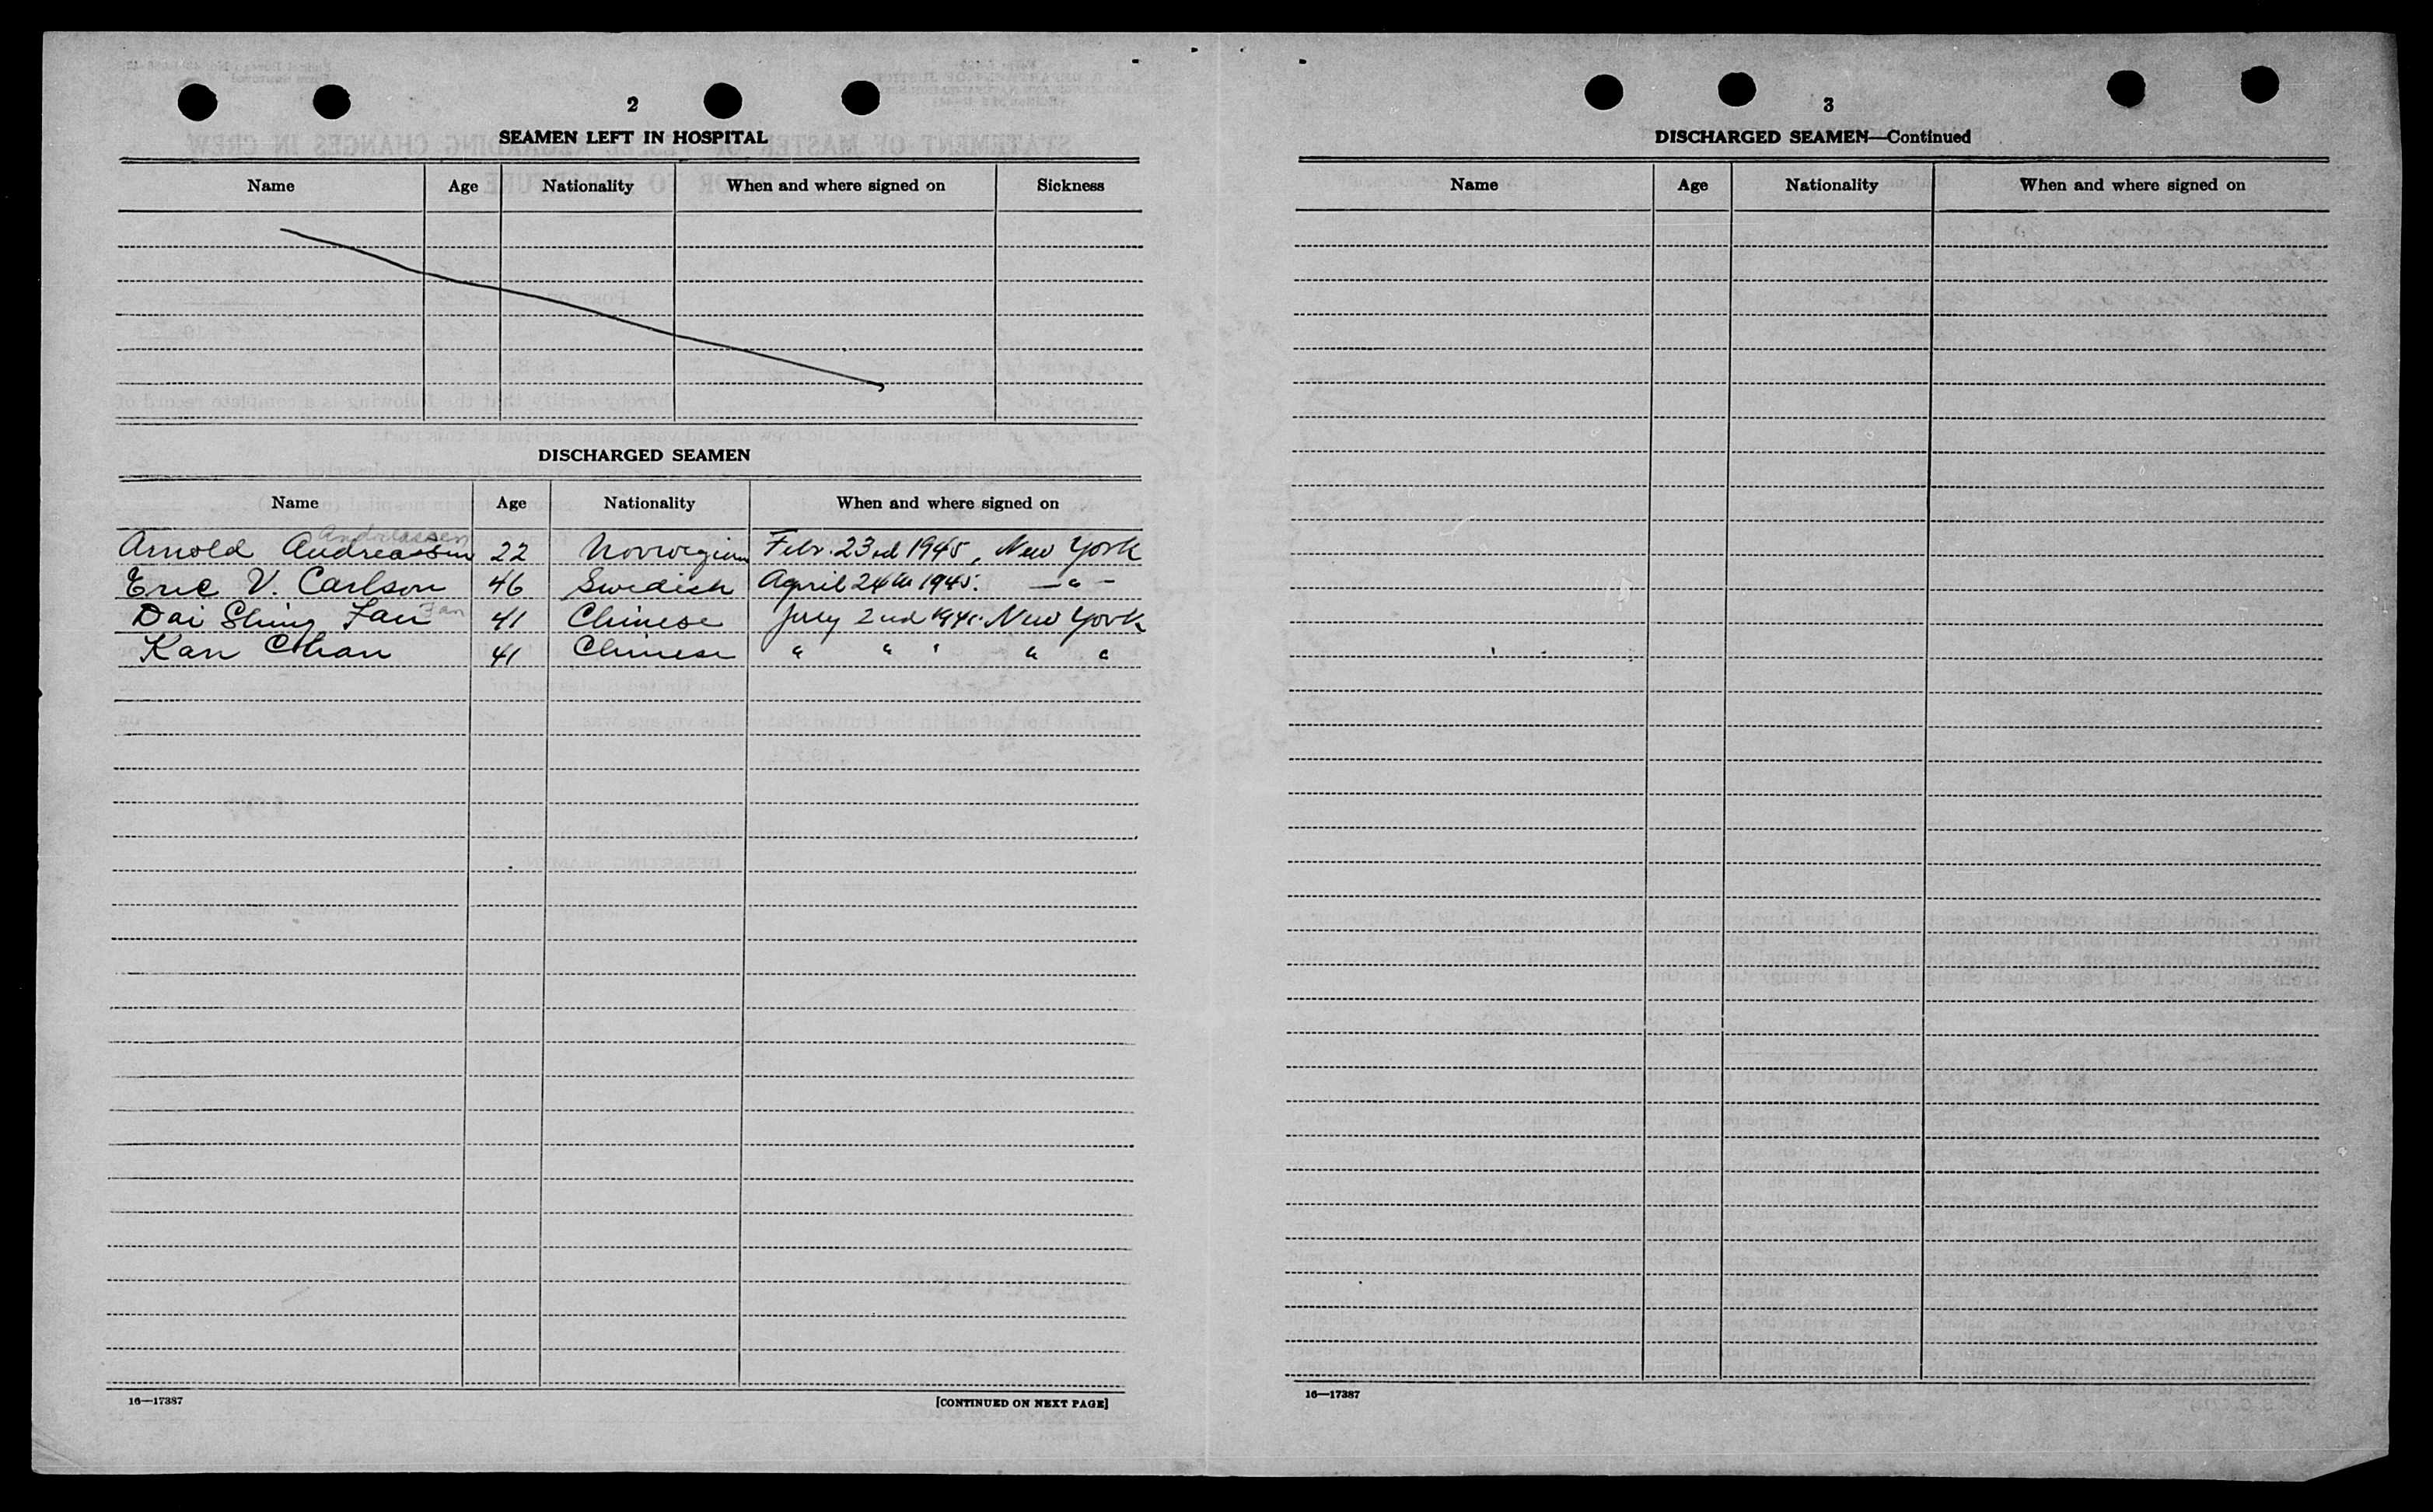 2
SEAMEN LEFT IN HOSPITAL
Name Age Nationality When and where signed on Sickness
DISCHARGED SEAMEN
Name Age Nationality When and where signed on
Andreassen
Arnold Andreassen 22 Norwegian Febr. 23rd 1945, New York
Eric V. Carlson 46 Swedish April 24th 1945. —"—
Dai Shing Fan Fan 41 Chinese July 2nd 1945. New York
Kan Chan 41 Chinese " " " " "
16—17387 [CONTINUED ON NEXT PAGE]
3
DISCHARGED SEAMEN—Continued
Name Age Nationality When and where signed on
16—17387